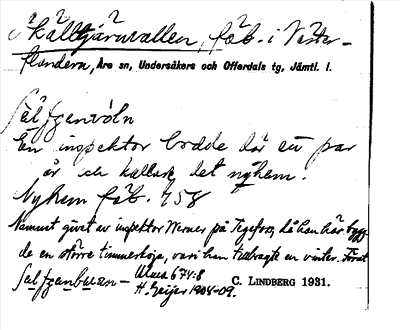 Källtjärnvallen, fäb. i Väster-
flondern, Åre sn, Undersåkers och Offerdals tg, Jämtl. l.
En inspektor bodde där ett par
år och kallade det nyhem.
Nyhem fäb. 458
Namnet givet av inspektor Werner på Tegefors, då han här bygg-
de en större timmerkoja, vari han tillbragte en vinter. Förut
Uluaa 674:8
H. Geijer 1908-09.
C. LINDBERG 1931.